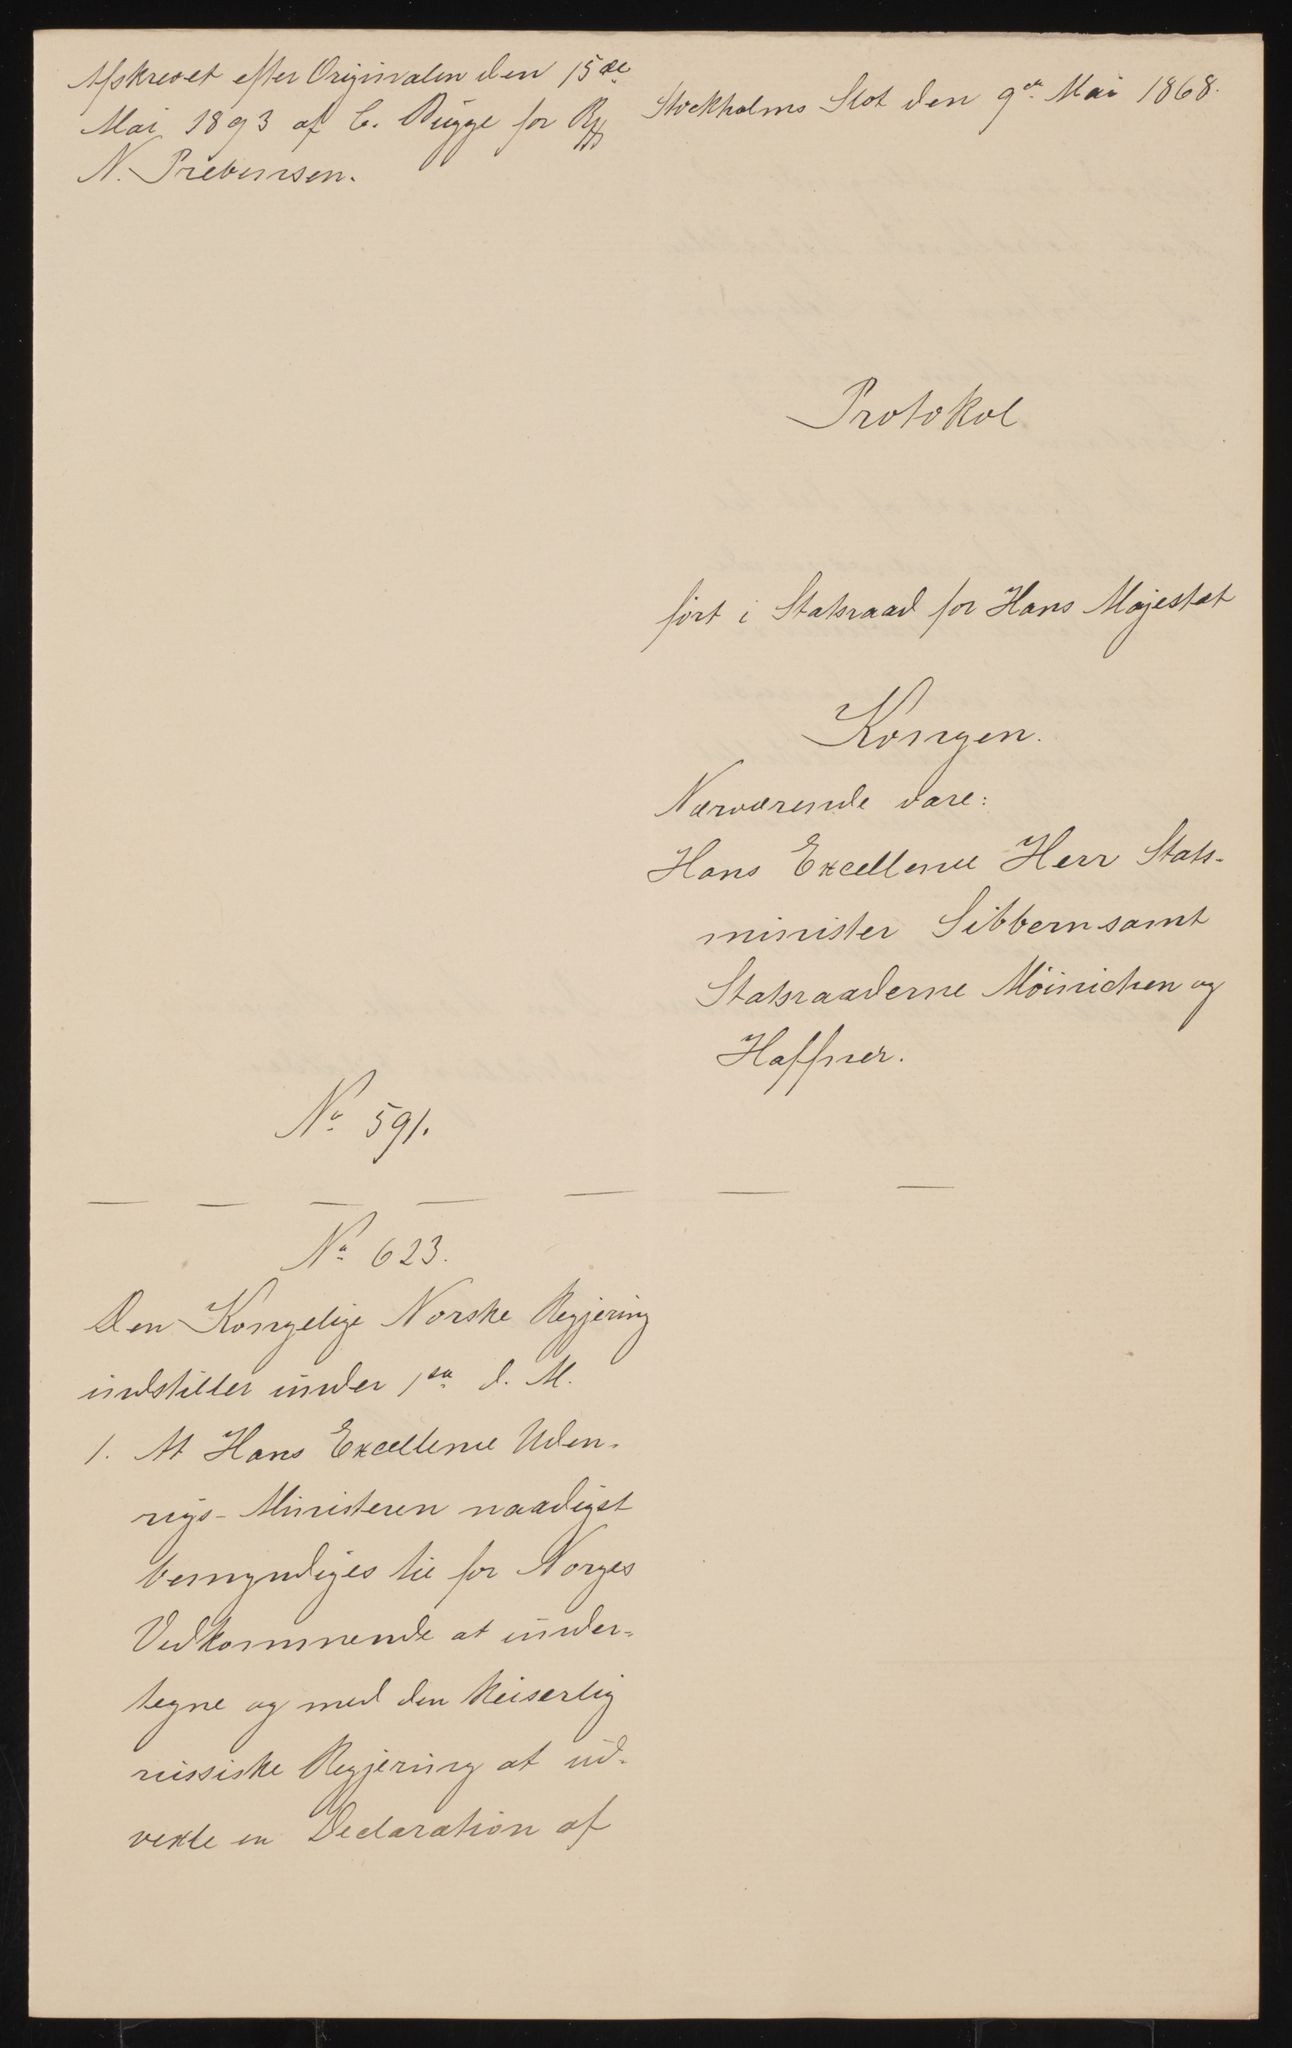 Afskrevet efter Originalen den 15de
Mai 1893 af C. Bugge for
N. Prebensen.
Stockholms Slot den 9de Mai 1868.
Protokol
ført i Statsraad for Hans Majestæt
Kongen.
Nærværende vare:
Hans Excellence Herr Stats-
minister Sibbern samt
Statsraaderne Möinichen og
Haffner.
No 591.
No 623.
Den Kongelige Norske Regjering
indstiller under 1ste d. M.
1. At Hans Excellence Uden-
rigs-Ministeren naadigst
bemyndiges til for Norges
Vedkommende at under-
tegne og med den keiserlig
russiske Regjering at ud-
vexle en Declaration af